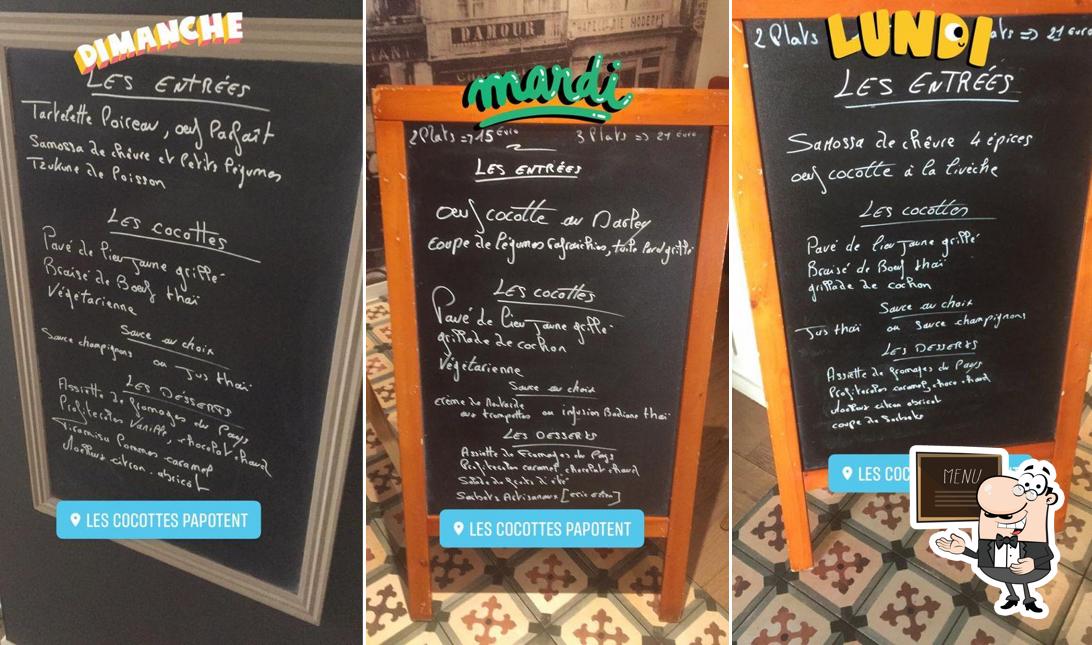 DIMANCHE
LES ENTRÉES
Tartelette Poireau, oeuf Parfait
Samossa de chèvre et Petits légumes
Tzukune de Poisson
LES COCOTTES
Pavé de lieu jaune grillé
Braisé de Boeuf thaï
Végétarienne
Sauce au choix
Sauce champignons ou Jus thaï
LES DESSERTS
Assiette de fromages du Pays
Profiteroles Vanille, chocolat chaud
Tiramisu Pommes caramel
Moelleux citron - abricot
LES COCOTTES PAPOTENT
mardi
2 Plats => 15 Euro 3 Plats => 21 euro
LES ENTRÉES
oeuf cocotte au
Coupe de légumes rafraichies, tuile grillé
LES COCOTTES
Pavé de lieu jaune grillé
grillade de cochon
Végétarienne
Sauce au choix
crème de Moutarde
aux trompettes ou infusion Badiane thaï
LES DESSERTS
Assiette de Fromages du Pays
Profiteroles caramel, chocolat chaud
Salade de fruits d'été
Sorbets Artisanaux
LES COCOTTES PAPOTENT
LUNDI
2 Plats => 21 euro
LES ENTRÉES
Samossa de chèvre 4 épices
oeuf cocotte à la livèche
LES COCOTTES
Pavé de lieu jaune grillé
Braisé de Boeuf thaï
grillade de cochon
Sauce au choix
Jus thaï ou Sauce champignons
LES DESSERTS
Assiette de fromages du Pays
Profiteroles caramel, choco chaud
Moelleux citron abricot
coupe de Sorbets
LES COC
MENU